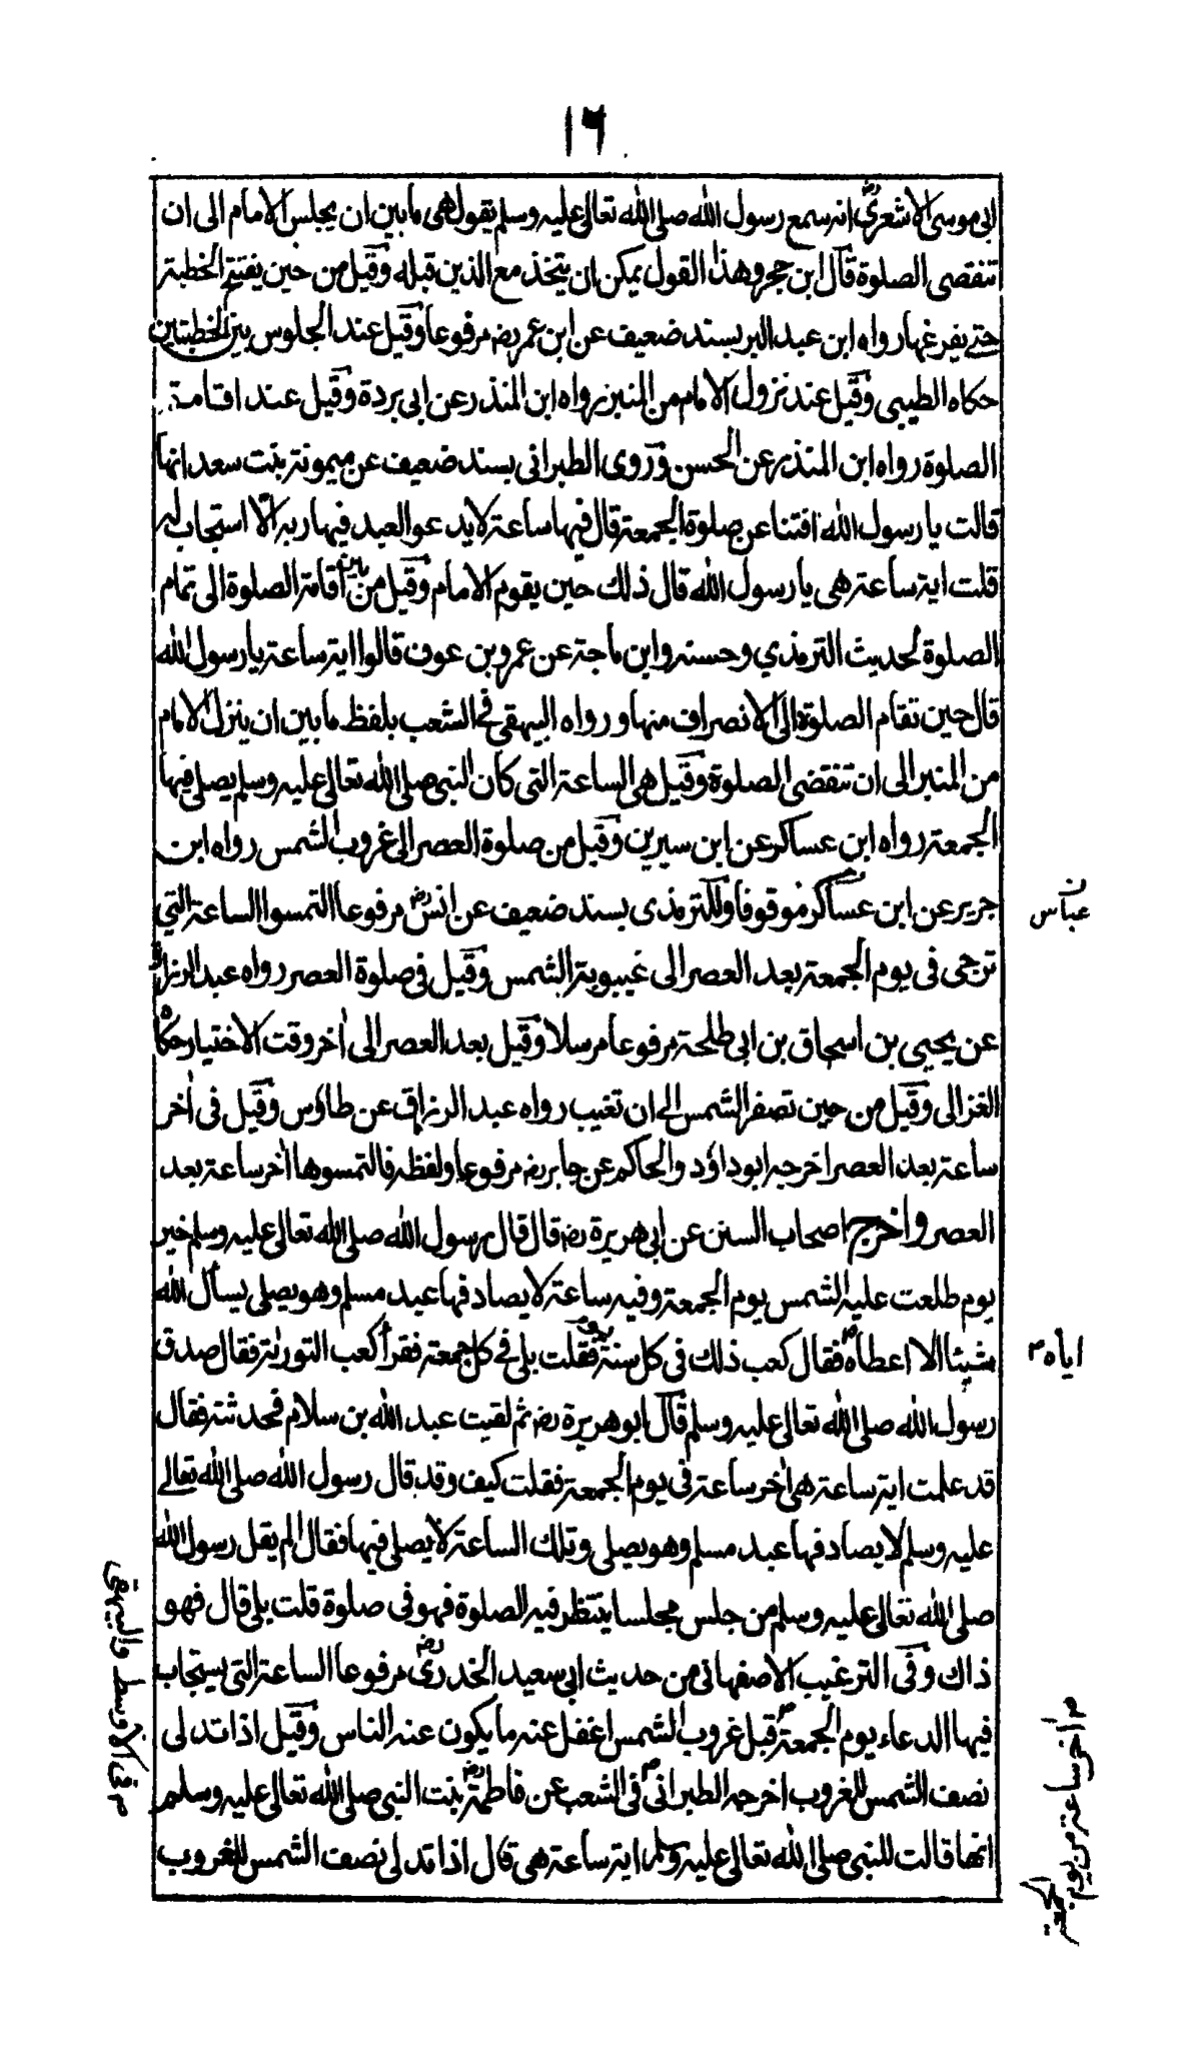 ١٦
ابى موسى الاشعرىؓ انه سمع رسول الله صلى الله تعالى عليه وسلم يقول هى ما بين ان يجلس الامام الى ان
تنقضى الصلوة قال ابن حجر وهذا القول يمكن ان يتخذ مع الذين قبله وقيل من حين يفتتح الخطبة
حتے يفرغها رواه ابن عبد البر بسند ضعيف عن ابن عمر رض مرفوعا وقيل عند الجلوس بين الخطبتين
حكاه الطيبى وقيل عند نزول الامام من المنبر رواه ابن المنذر عن ابى بردة وقيل عند اقامة
الصلوة رواه ابن المنذر عن الحسن وروى الطبرانى بسند ضعيف عن ميمونة بنت سعد انها
قالت يا رسول الله افتنا عن صلوة الجمعة قال فيها ساعة لا يدعو العبد فيها ربه الا استجاب له
قلت اية ساعة هى يا رسول الله قال ذلك حين يقوم الامام وقيل من بين اقامة الصلوة الى تمام
الصلوة لحديث الترمذي وحسنه وابن ماجة عن عمرو بن عوف قالوا اية ساعة يا رسول الله
قال حين تقام الصلوة الى الانصراف منها ورواه البيهقى فے الشعب بلفظ ما بين ان ينزل الامام
من المنبر الى ان تنقضى الصلوة وقيل هى الساعة التى كان النبى صلى الله تعالى عليه وسلم يصلى فيها
الجمعة رواه ابن عساكر عن ابن سيرين وقيل من صلوة العصر الى غروب الشمس رواه ابن
جرير عن ابن عساكر موقوفا وللترمذى بسند ضعيف عن انسؓ مرفوعا التمسوا الساعة التي
ن
عباس
ترجى فى يوم الجمعة بعد العصر الى غيبوبة الشمس وقيل فى صلوة العصر رواه عبد الرزاق
عن يحيى بن اسحاق بن ابى طلحة مرفوعا مرسلا وقيل بعد العصر الى اٰخر وقت الاختيار حكاه
الغزالى وقيل من حين تصفر الشمس الے ان تغيب رواه عبد الرزاق عن طاؤس وقيل فى اٰخر
ساعة بعد العصر اخرجه ابو داؤد والحاكم عن جابر رض مرفوعا ولفظه فالتمسوها اٰخر ساعة بعد
العصر واخرج اصحاب السنن عن ابى هريرة رض قال قال رسول الله صلى الله تعالى عليه وسلم خير
يوم طلعت عليه الشمس يوم الجمعة وفيه ساعة لا يصادفها عبد مسلم وهو يصلى يسأل الله
شيئا الا اعطاه فقال كعب ذلك فى كل سنة فقلت بلى فے كل جمعة فقرأ كعب التورٰىة فقال صدق
اياه ٢
رسول الله صلى الله تعالى عليه وسلم قال ابو هريرة رض ثم لقيت عبد الله بن سلام فحدثته فقال
قد علمت اية ساعة هى اٰخر ساعة فى يوم الجمعة فقلت كيف وقد قال رسول الله صلى الله تعالے
عليه وسلم لا يصادفها عبد مسلم وهو يصلى وتلك الساعة لا يصلى فيها فقال الم يقل رسول الله
صلى الله تعالى عليه وسلم من جلس مجلسا ينتظر فيه الصلوة فهو فى صلوة قلت بلى قال فهو
ذاك وفى الترغيب الاصفهانى من حديث ابى سعيد الخدرىؓ مرفوعا الساعة التى يستجاب
فيها الدعاء يوم الجمعة قبل غروب الشمس اغفل عنه ما يكون عنه الناس وقيل اذا تدلى
م اٰخر ساعة من يوم الجمعة
نصف الشمس للغروب اخرجه الطبرانى فى الشعب عن فاطمةؓ بنت النبى صلى الله تعالى عليه وسلم
م فى الاوسط والبيهقى
انها قالت للنبى صلى الله تعالى عليه وسلم اية ساعة هى قال اذا تدلى نصف الشمس للغروب